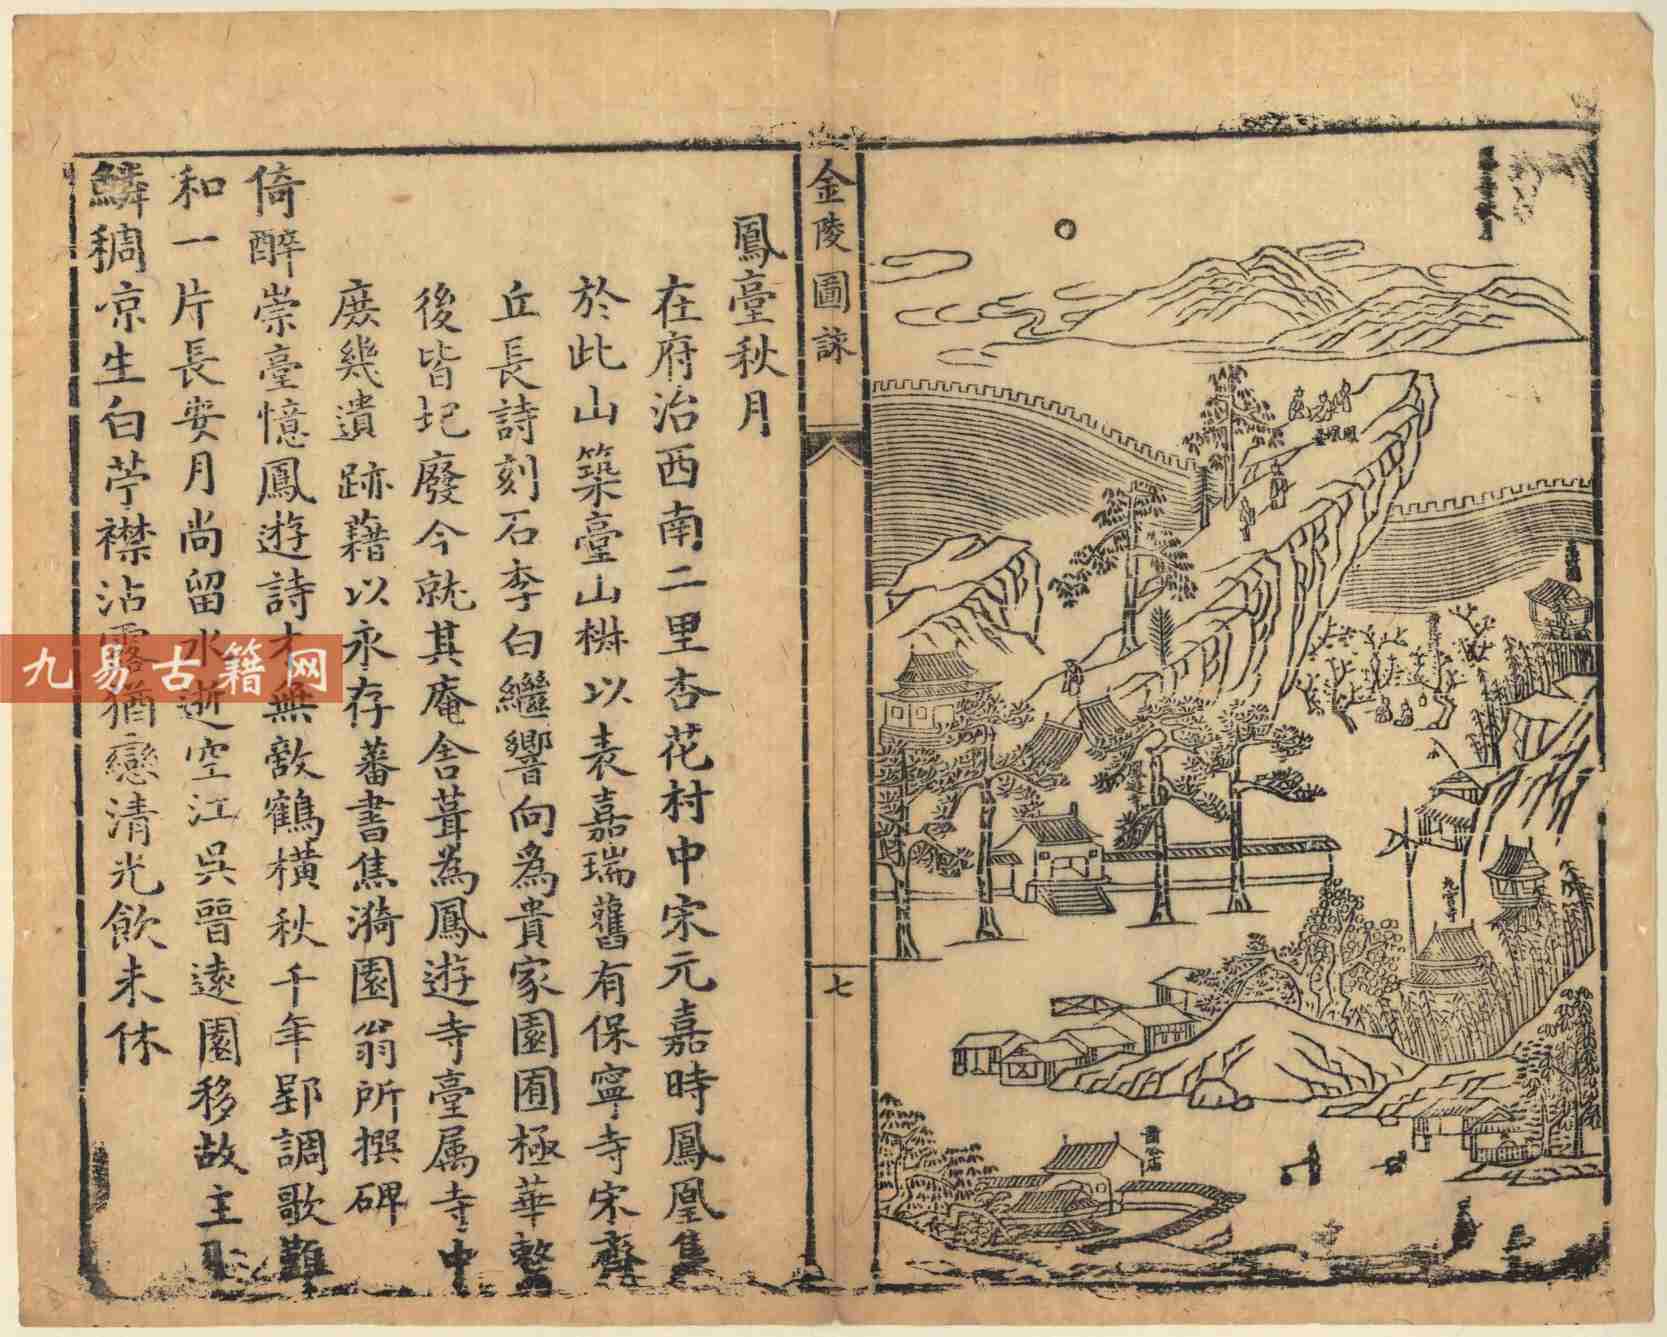 鳳凰臺
九官寺
金陵圖詠
七
鳳臺秋月
在府治西南二里杏花村中宋元嘉時鳳凰集
於此山築臺山椒以表嘉瑞舊有保寧寺宋齊
丘長詩刻石李白繼響向為貴家園囿極華整
後皆圮廢今就其庵舍葺為鳳遊寺臺属寺中
庶幾遺跡藉以永存蕃書焦漪園翁所撰碑
倚醉崇臺憶鳳遊詩才無敵鶴橫秋千年郢調歌難
和一片長安月尚留水逝空江吳晉遠園移故主
鱗稠凉生白苧襟沾露猶戀清光飲未休
九易古籍网